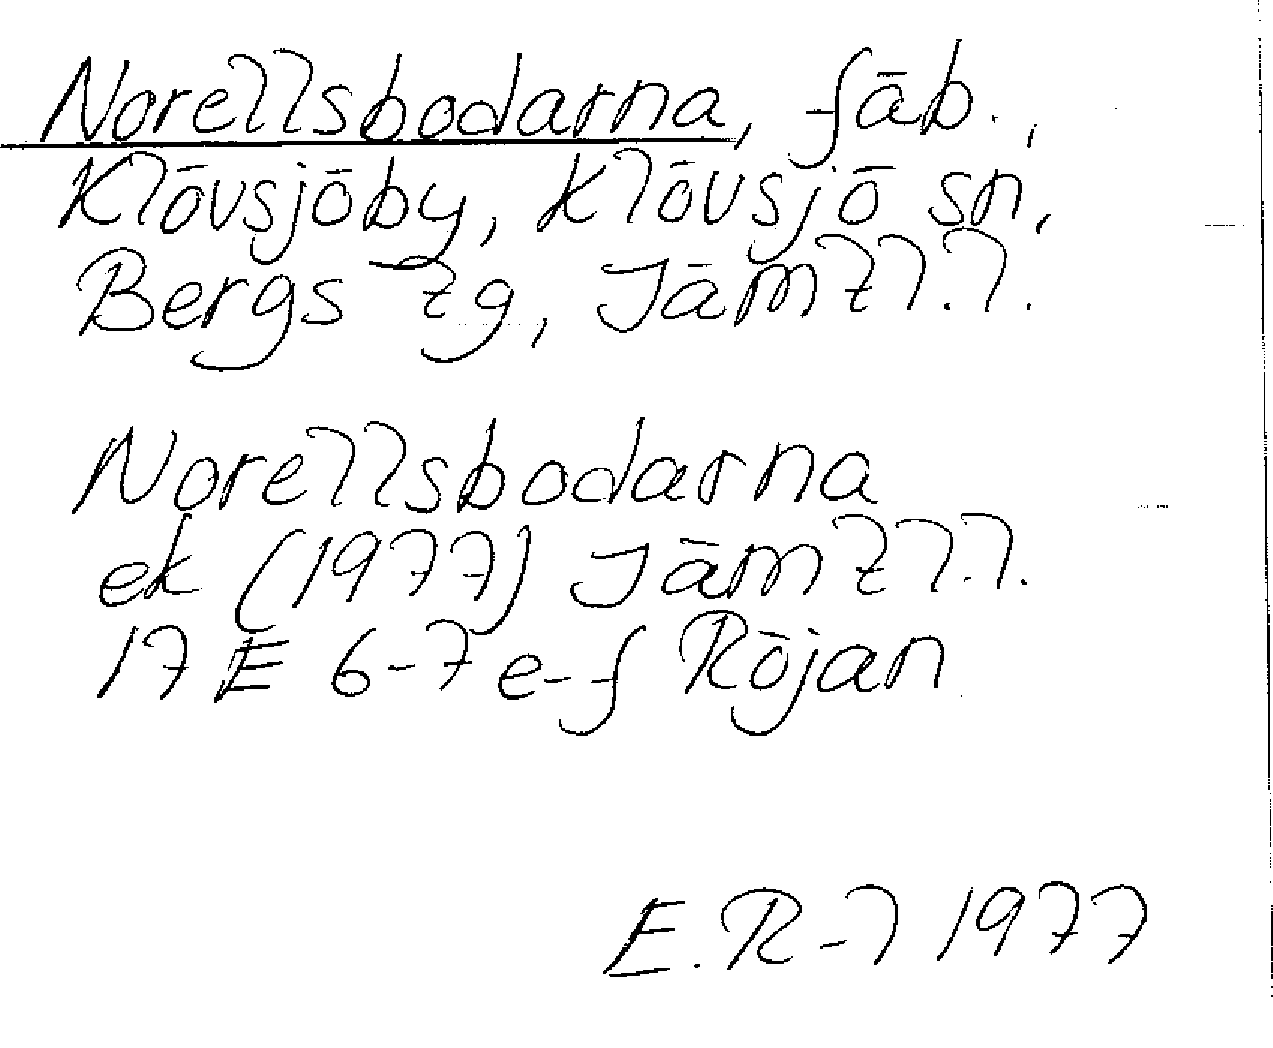 Norellsbodarna, fäb.,
Klövsjöby, Klövsjö sn,
Bergs tg, Jämtl.l.
Norellsbodarna
ek (1977) Jämtl.l.
17 E 6-7 e-f Röjan
E.R-l 1977